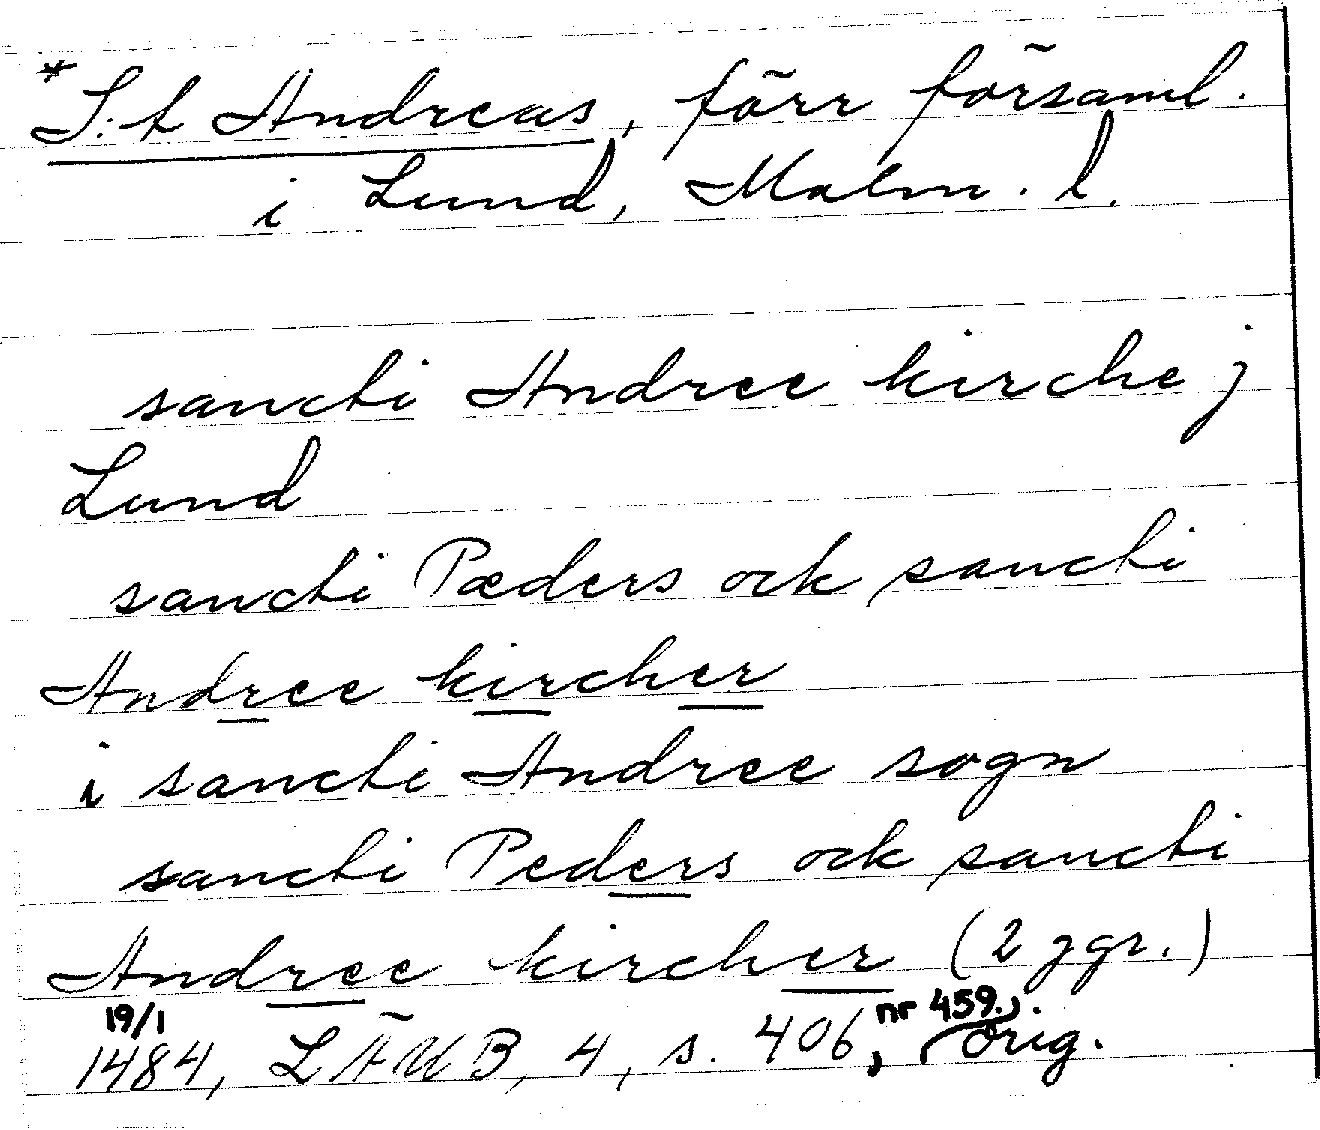 *S:t Andreas, förr församl.
i Lund, Malm. l.
sancti Andree kirche j
Lund
sancti Pæders ock sancti
Andree kircher
i sancti Andree sogn
sancti Peders ock sancti
Andree kircher (2 ggr.)
19/1 1484, LÄUB, 4, s. 406, nr 459. orig.